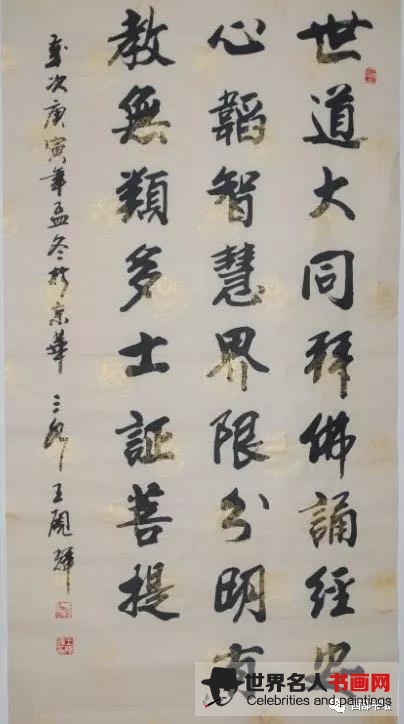 世道大同拜佛誦經忠
心韜智慧界限分明有
教無類多士証菩提
歲次庚寅年孟冬於京華 王鳳
世界名人书画网
Celebrities and paintings